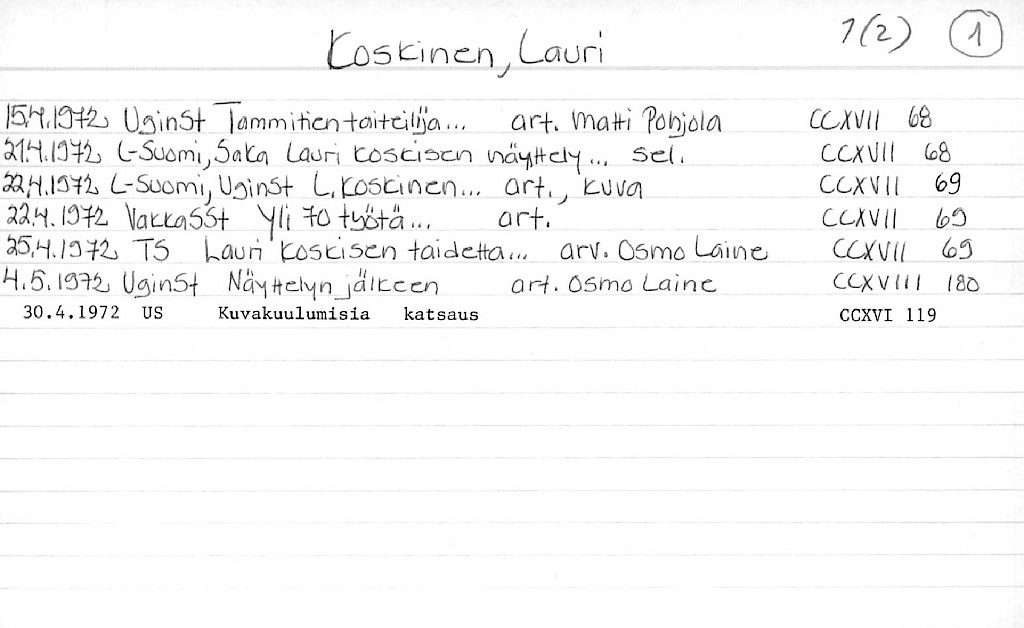 Koskinen, Lauri 1(2) 1
15.4.1972 UginSt Tammitien taiteilija... art. Matti Pohjola CCXVII 68
21.4.1972 L-Suomi, SaKa Lauri Koskisen näyttely... sel. CCXVII 68
22.4.1972 L-Suomi, UginSt L. Koskinen... art., kuva CCXVII 69
22.4.1972 VakkaSSt Yli 70 työtä... art. CCXVII 69
25.4.1972 TS Lauri Koskisen taidetta... arv. Osmo Laine CCXVII 69
4.5.1972 UginSt Näyttelyn jälkeen art. Osmo Laine CCXVIII 180
30.4.1972 US Kuvakuulumisia katsaus CCXVI 119